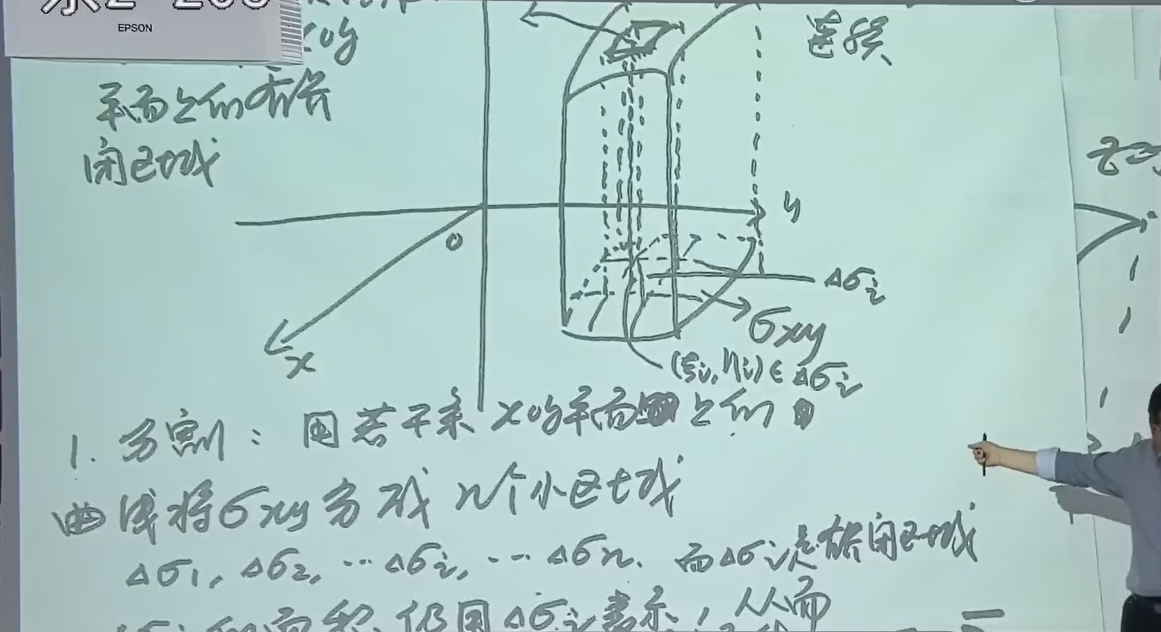 EPSON
xoy
平面上的有界
闭区域
连续
y
o
x
Δσi
σxy
(ξi, ηi) ∈ Δσi
1. 分割: 用若干条 xoy平面 上的
曲线将σxy分成 n个小区域
Δσ1, Δσ2, … Δσi, … Δσn. 而Δσi是 闭区域
的面积仍用Δσi表示, 从而